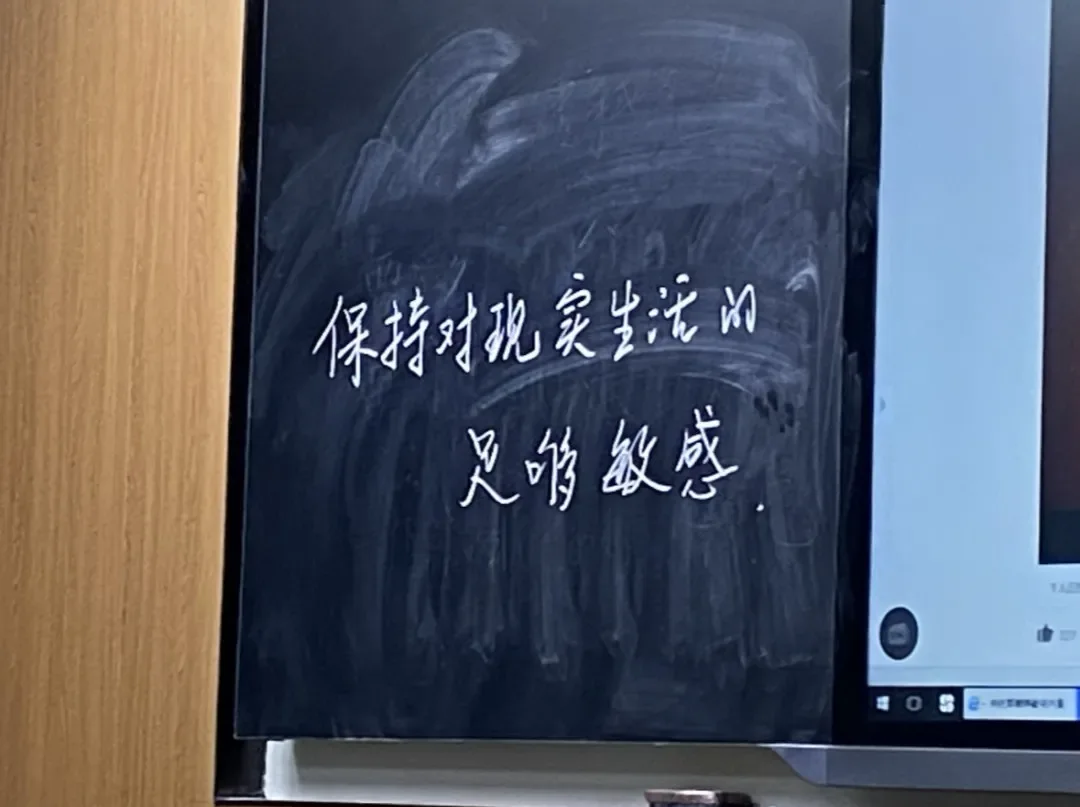 保持对现实生活的
足够敏感.